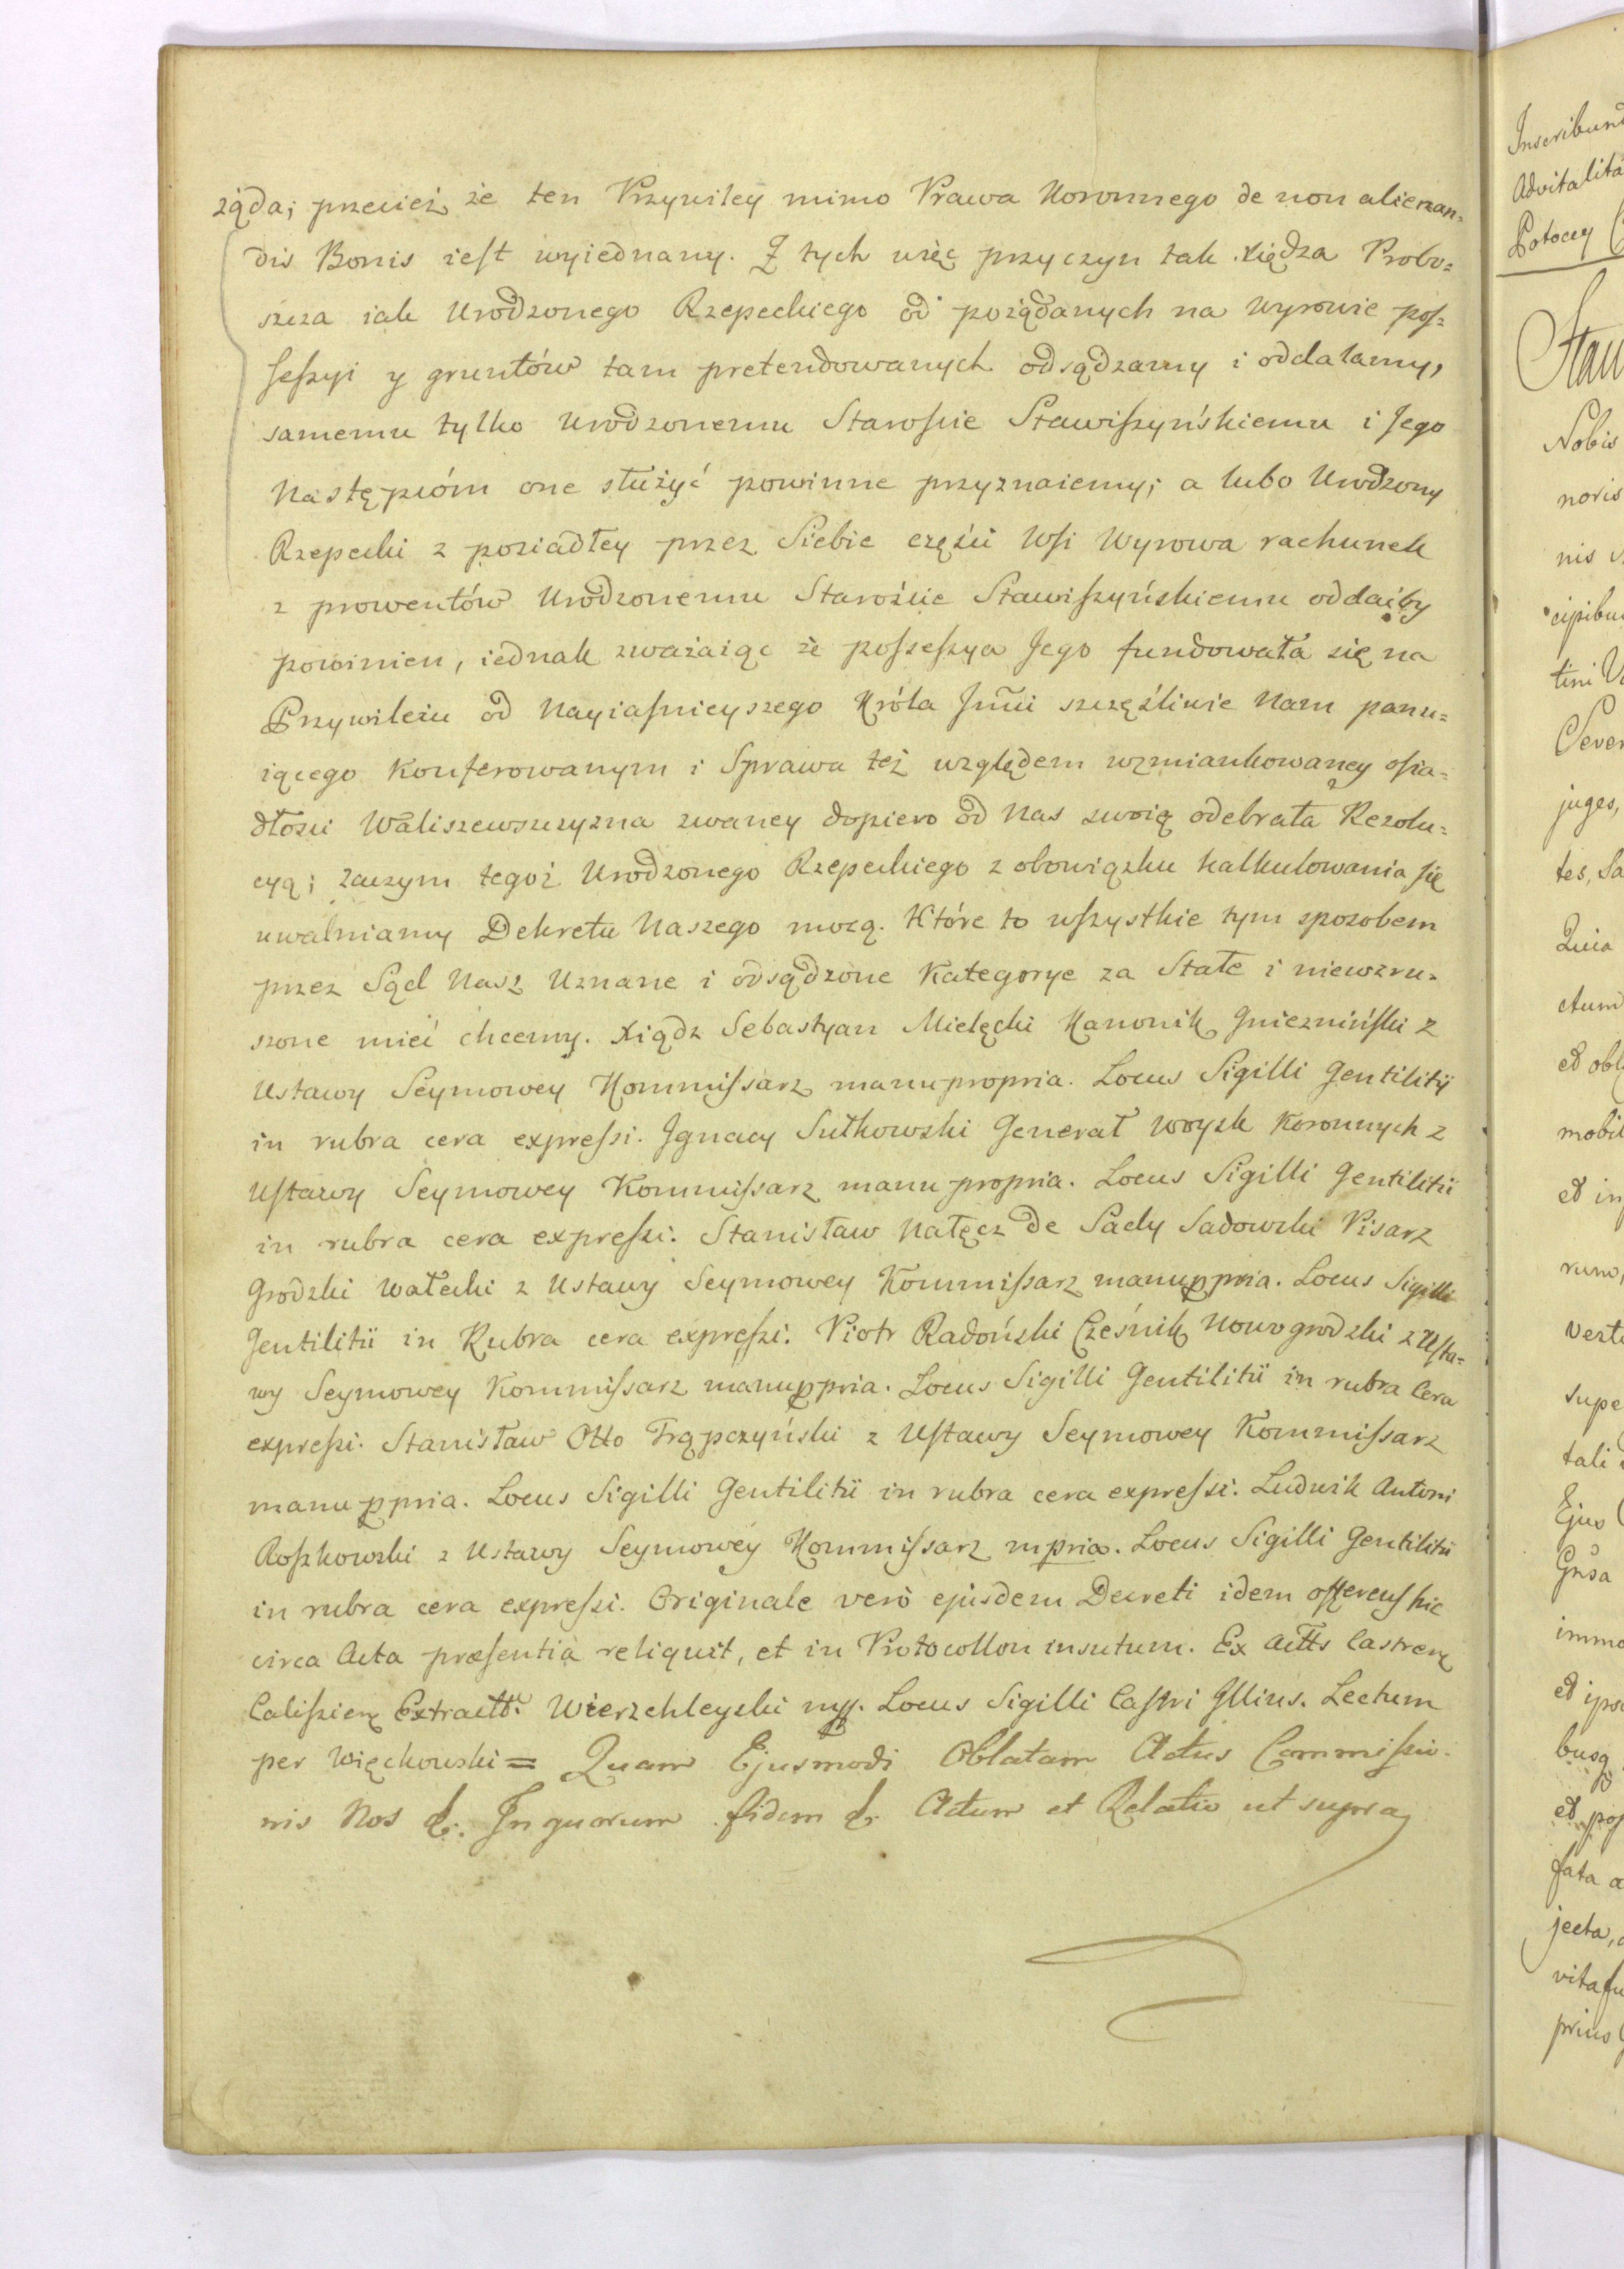 żąda; przecież że ten Przywiley mimo Prawa Koronnego de non alienan=
dis Bonis iest wyiednany. Z tych więc przyczyn tak Xiędza Probo=
szcza iak Urodzonego Rzepeckiego od pożądanych na Wyrowie pos=
sessyi y gruntów tam pretendowanych odsądzamy i oddalamy,
samemu tylko Urodzonemu Staroście Stawiszyńskiemu i Jego
Następcóm one służyć powinne przyznaiemy; a lubo Urodzony
Rzepecki z posiadłey przez Siebie części Wsi Wyrowa rachunek
z prowentów Urodzonemu Staroście Stawiszyńskiemu oddaćby
powinien, iednak zważaiąc że possessya Jego fundowała się na
Przywileiu od Nayiaśnieyszego Króla Jmci szczęśliwie Nam panu=
iącego Konferowanym i Sprawa też względem wzmiankowaney osia=
dłości Waliszewszczyzna zwaney dopiero od Nas swoią odebrała Rezolu=
cyą; zaczym tegoż Urodzonego Rzepeckiego z obowiązku kalkulowania się
uwalniamy Dekretu Naszego mocą. Które to wszystkie tym sposobem
przez Sąd Nasz Uznane i odsądzone Kategorye za Stałe i niewzru=
szone mieć chcemy. Xiądz Sebastyan Mielęcki Kanonik Gniezniński z
Ustawy Seymowey Kommissarz manu propria. Locus Sigilli Gentilitii
in rubra cera expressi. Ignacy Sułkowski Generał Woysk Koronnych z
Ustawy Seymowey Kommissarz manu propria. Locus Sigilli Gentilitii
in rubra cera expressi. Stanisław Nałęcz de Sady Sadowski Pisarz
Grodzki Wałecki z Ustawy Seymowey Kommissarz manuppria. Locus Sigilli
Gentilitii in Rubra cera expressi. Piotr Radoński Cześnik Nowogrodzki z Usta=
wy Seymowey Kommissarz manuppria. Locus Sigilli Gentilitii in rubra Cera
expressi. Stanisław Otto Trąpczyński z Ustawy Seymowey Kommissarz
manuppria. Locus Sigilli Gentilitii in rubra cera expressi. Ludwik Antoni
Roszkowski z Ustawy Seymowey Kommissarz mpria. Locus Sigilli Gentilitii
in rubra cera expressi. Originale verò ejusdem Decreti idem offerens hic
circa Acta præsentia reliquit, et in Protocollon insutum. Ex Acttis Castren
Calissien Extractt. Wierzchleyski mp. Locus Sigilli Castri Gllius. Lectum
per Więckowski = Quam Ejusmodi Oblatam Actus Commissio=
nis Nos &. In quorum fidem &. Actum et Relatio ut supra
Inscribun
Advitalita
Potocey
Stan
Nobis
noris
nis
cipibus
tini
Seve
juges,
tes, Sa
Quia
ctum
et obl
mobil
et in
rum,
vert
supe
tali
Ejus
Gnsa
immo
et ips
busq
et pos
fata a
jecta,
vita fu
prius